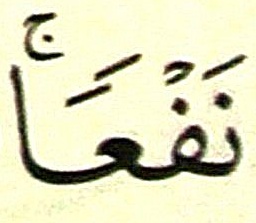 نَفْعَاًۚ